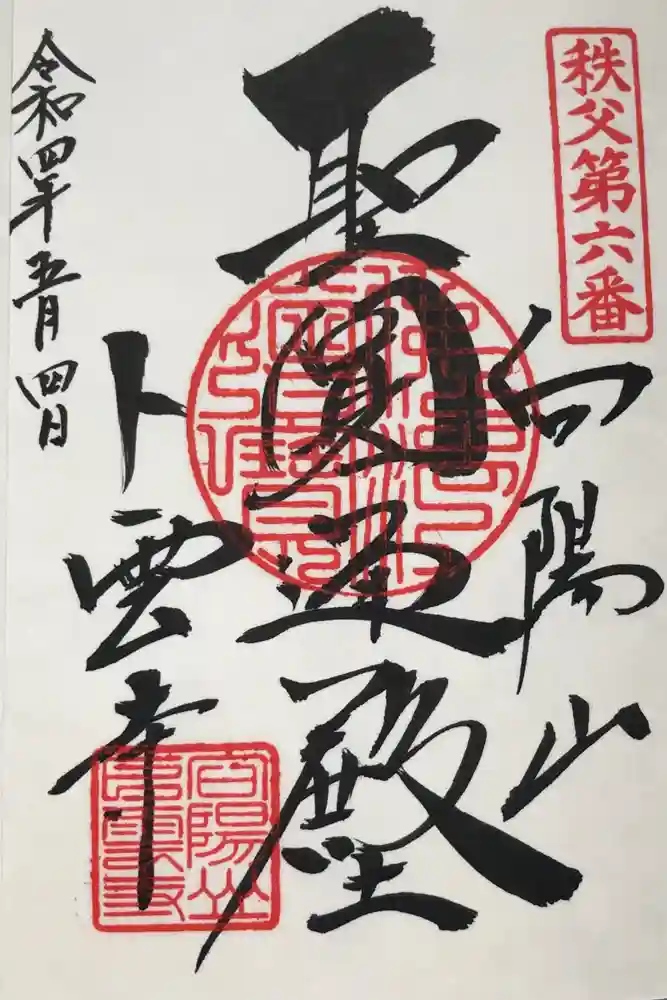 秩父第六番
向陽山
聖圓通殿
卜雲寺
令和四年五月四日
向陽山卜雲寺